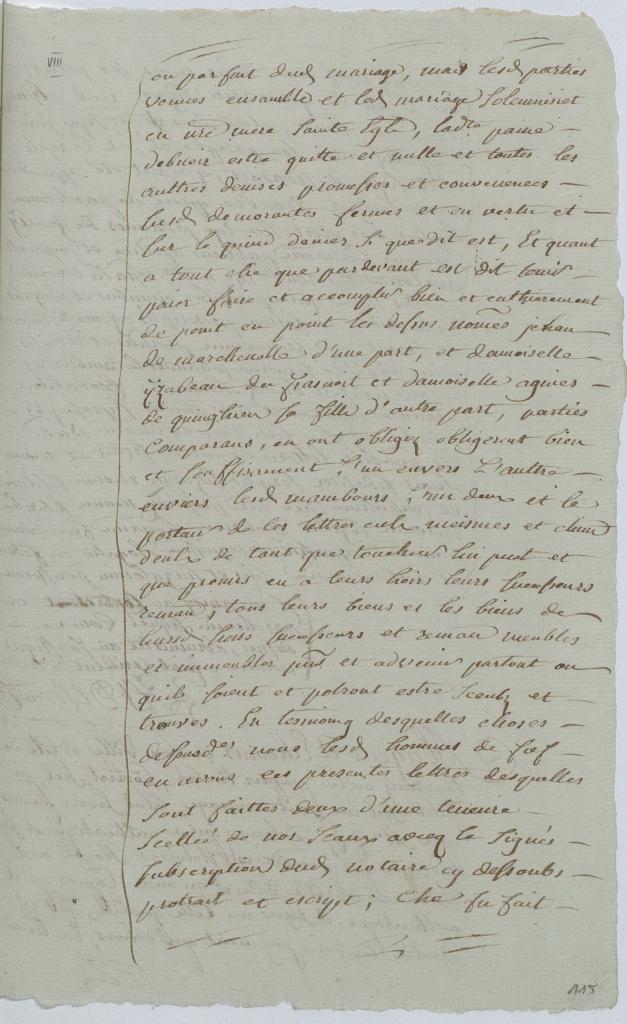 VIII
ou parfait dud mariage, mais lesd parties
venues ensamble et led mariage solemnisiet
en nre mere Sainte Egle, ladte paine
debvoir estre quitte et nulle et toutes les
aultres devises promesses et convenences
susd demorantes fermes et en vertu et
sur le denier si que dit est, Et quant
a tout che que pardevant est dit tenir
paier faire et accomplir bien et enthierement
de point en point les dessus nomes jehan
de marchenelle d'une part, et damoiselle
yzabeau du frasnoit et damoiselle agnies
de quinghien sa fille d'autre part, parties
Comparans, en ont obligiez obligerent bien
et souffisament l'un envers L'aultre
enviers lesd mambours l'un deux et le
porteur de ces lettres eulx meismes et chun
deulx de tant que touchier lui puet et
que promis en a leurs hoirs leurs successeurs
reman, tous leurs biens et les biens de
leursd hoirs successeurs et reman meubles
et immeubles pns et advenir partout ou
quils soient et polront estre sceuls et
trouves. En tesmoing desquelles choses
dessusdes nous lesd hommes de fief
en avons ces presentes lettres desquelles
sont faittes deux d'une teneure
Scellé de nos Seaux avecq le Signé
subscription dud notaire cy dessoubs
protrait et escript; Che fu fait
115